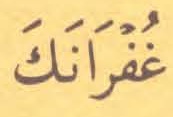 غُفْرَانَكَ